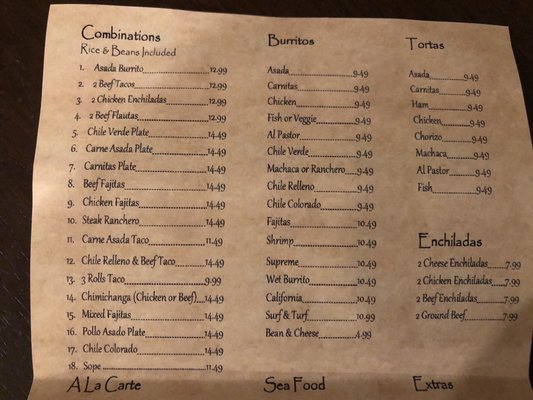 Combinations
Rice & Beans Included
1. Asada Burrito 12.99
2. 2 Beef Tacos 12.99
3. 2 Chicken Enchiladas 12.99
4. 2 Beef Flautas 12.99
5. Chile Verde Plate 14.49
6. Carne Asada Plate 14.49
7. Carnitas Plate 14.49
8. Beef Fajitas 14.49
9. Chicken Fajitas 14.49
10. Steak Ranchero 14.49
11. Carne Asada Taco 11.49
12. Chile Relleno & Beef Taco 14.49
13. 3 Rolls Taco 9.99
14. Chimichanga (Chicken or Beef) 14.49
15. Mixed Fajitas 14.49
16. Pollo Asado Plate 14.49
17. Chile Colorado 14.49
18. Sope 11.49
A La Carte
Burritos
Asada 9.49
Carnitas 9.49
Chicken 9.49
Fish or Veggie 9.49
Al Pastor 9.49
Chile Verde 9.49
Machaca or Ranchero 9.49
Chile Relleno 9.49
Chile Colorado 9.49
Fajitas 10.49
Shrimp 10.49
Supreme 10.49
Wet Burrito 10.49
California 10.49
Surf & Turf 10.99
Bean & Cheese 4.99
Sea Food
Tortas
Asada 9.49
Carnitas 9.49
Ham 9.49
Chicken 9.49
Chorizo 9.49
Machaca 9.49
Al Pastor 9.49
Fish 9.49
Enchiladas
2 Cheese Enchiladas 7.99
2 Chicken Enchiladas 7.99
2 Beef Enchiladas 7.99
2 Ground Beef 7.99
Extras